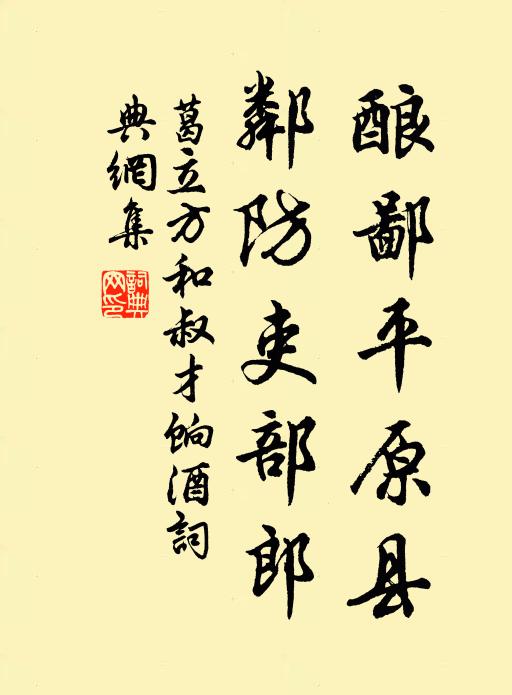 酿鄙平原县
鄰防吏部郎
葛立方和叔才餉酒詞
典網集
詞典網印